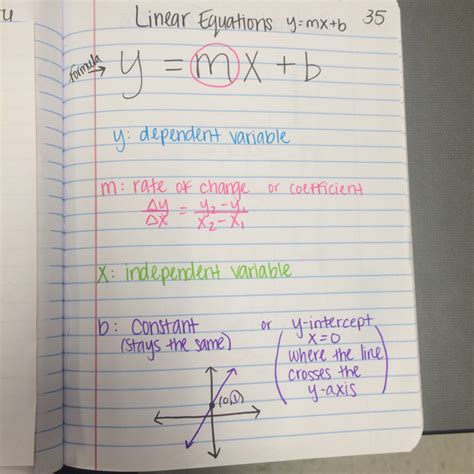 Linear Equations y=mx+b 35
formula → y = mx + b
y: dependent variable
m: rate of change or coefficient
Δy/Δx = y₂-y₁/x₂-x₁
x: independent variable
b: constant or y-intercept
(stays the same) x=0
where the line
crosses the
y-axis
(0,1)